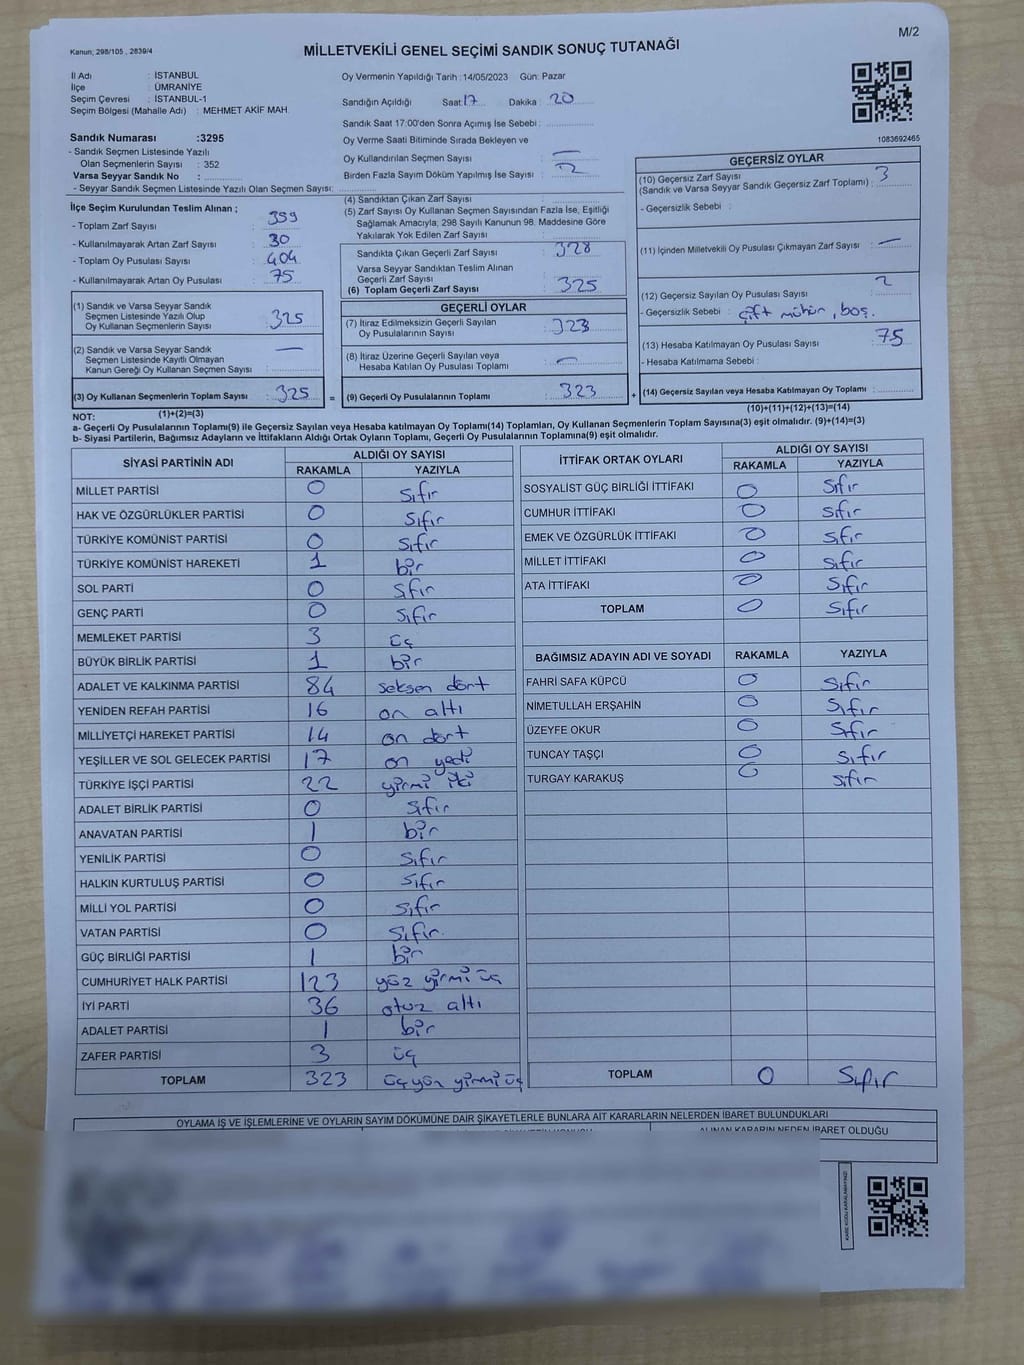 M/2
Kanun; 298/105 , 2839/4
MİLLETVEKİLİ GENEL SEÇİMİ SANDIK SONUÇ TUTANAĞI
İl Adı : İSTANBUL
İlçe : ÜMRANİYE
Seçim Çevresi : İSTANBUL-1
Seçim Bölgesi (Mahalle Adı) : MEHMET AKİF MAH.
Sandık Numarası :3295
- Sandık Seçmen Listesinde Yazılı
Olan Seçmenlerin Sayısı : 352
Varsa Seyyar Sandık No :
- Seyyar Sandık Seçmen Listesinde Yazılı Olan Seçmen Sayısı:
Oy Vermenin Yapıldığı Tarih :14/05/2023 Gün: Pazar
Sandığın Açıldığı Saat: 17 Dakika : 20
Sandık Saat 17:00'den Sonra Açılmış İse Sebebi :
Oy Verme Saati Bitiminde Sırada Bekleyen ve
Oy Kullandırılan Seçmen Sayısı : —
Birden Fazla Sayım Döküm Yapılmış İse Sayısı :
1083692465
İlçe Seçim Kurulundan Teslim Alınan ;
- Toplam Zarf Sayısı : 399
- Kullanılmayarak Artan Zarf Sayısı : 30
- Toplam Oy Pusulası Sayısı : 404
- Kullanılmayarak Artan Oy Pusulası : 75
(1) Sandık ve Varsa Seyyar Sandık
Seçmen Listesinde Yazılı Olup
Oy Kullanan Seçmenlerin Sayısı : 325
(2) Sandık ve Varsa Seyyar Sandık
Seçmen Listesinde Kayıtlı Olmayan
Kanun Gereği Oy Kullanan Seçmen Sayısı : —
(3) Oy Kullanan Seçmenlerin Toplam Sayısı : 325
(1)+(2)=(3)
(4) Sandıktan Çıkan Zarf Sayısı :
(5) Zarf Sayısı Oy Kullanan Seçmen Sayısından Fazla İse, Eşitliği
Sağlamak Amacıyla; 298 Sayılı Kanunun 98. Maddesine Göre
Yakılarak Yok Edilen Zarf Sayısı :
Sandıkta Çıkan Geçerli Zarf Sayısı : 328
Varsa Seyyar Sandıktan Teslim Alınan
Geçerli Zarf Sayısı :
(6) Toplam Geçerli Zarf Sayısı : 325
GEÇERLİ OYLAR
(7) İtiraz Edilmeksizin Geçerli Sayılan
Oy Pusulalarının Sayısı : 323
(8) İtiraz Üzerine Geçerli Sayılan veya
Hesaba Katılan Oy Pusulası Toplamı : —
= (9) Geçerli Oy Pusulalarının Toplamı : 323 +
GEÇERSİZ OYLAR
(10) Geçersiz Zarf Sayısı : 3
(Sandık ve Varsa Seyyar Sandık Geçersiz Zarf Toplamı)
- Geçersizlik Sebebi :
(11) İçinden Milletvekili Oy Pusulası Çıkmayan Zarf Sayısı : —
(12) Geçersiz Sayılan Oy Pusulası Sayısı : 2
- Geçersizlik Sebebi : çift mühür, boş.
(13) Hesaba Katılmayan Oy Pusulası Sayısı : 75
- Hesaba Katılmama Sebebi :
(14) Geçersiz Sayılan veya Hesaba Katılmayan Oy Toplamı :
(10)+(11)+(12)+(13)=(14)
NOT:
a- Geçerli Oy Pusulalarının Toplamı(9) ile Geçersiz Sayılan veya Hesaba katılmayan Oy Toplamı(14) Toplamları, Oy Kullanan Seçmenlerin Toplam Sayısına(3) eşit olmalıdır. (9)+(14)=(3)
b- Siyasi Partilerin, Bağımsız Adayların ve İttifakların Aldığı Ortak Oyların Toplamı, Geçerli Oy Pusulalarının Toplamına(9) eşit olmalıdır.
SİYASİ PARTİNİN ADI ALDIĞI OY SAYISI
RAKAMLA YAZIYLA
MİLLET PARTİSİ 0 sıfır
HAK VE ÖZGÜRLÜKLER PARTİSİ 0 sıfır
TÜRKİYE KOMÜNİST PARTİSİ 0 sıfır
TÜRKİYE KOMÜNİST HAREKETİ 1 bir
SOL PARTİ 0 sıfır
GENÇ PARTİ 0 sıfır
MEMLEKET PARTİSİ 3 üç
BÜYÜK BİRLİK PARTİSİ 1 bir
ADALET VE KALKINMA PARTİSİ 84 seksen dört
YENİDEN REFAH PARTİSİ 16 on altı
MİLLİYETÇİ HAREKET PARTİSİ 14 on dört
YEŞİLLER VE SOL GELECEK PARTİSİ 17 on yedi
TÜRKİYE İŞÇİ PARTİSİ 22 yirmi iki
ADALET BİRLİK PARTİSİ 0 sıfır
ANAVATAN PARTİSİ 1 bir
YENİLİK PARTİSİ 0 sıfır
HALKIN KURTULUŞ PARTİSİ 0 sıfır
MİLLİ YOL PARTİSİ 0 sıfır
VATAN PARTİSİ 0 sıfır
GÜÇ BİRLİĞİ PARTİSİ 1 bir
CUMHURİYET HALK PARTİSİ 123 yüz yirmi üç
İYİ PARTİ 36 otuz altı
ADALET PARTİSİ 1 bir
ZAFER PARTİSİ 3 üç
TOPLAM 323 üçyüz yirmi üç
İTTİFAK ORTAK OYLARI ALDIĞI OY SAYISI
RAKAMLA YAZIYLA
SOSYALİST GÜÇ BİRLİĞİ İTTİFAKI 0 sıfır
CUMHUR İTTİFAKI 0 sıfır
EMEK VE ÖZGÜRLÜK İTTİFAKI 0 sıfır
MİLLET İTTİFAKI 0 sıfır
ATA İTTİFAKI 0 sıfır
TOPLAM 0 sıfır
BAĞIMSIZ ADAYIN ADI VE SOYADI RAKAMLA YAZIYLA
FAHRİ SAFA KÜPCÜ 0 sıfır
NİMETULLAH ERŞAHİN 0 sıfır
ÜZEYFE OKUR 0 sıfır
TUNCAY TAŞÇI 0 sıfır
TURGAY KARAKUŞ 0 sıfır
TOPLAM 0 Sıfır
OYLAMA İŞ VE İŞLEMLERİNE VE OYLARIN SAYIM DÖKÜMÜNE DAİR ŞİKAYETLERLE BUNLARA AİT KARARLARIN NELERDEN İBARET BULUNDUKLARI
ALINAN KARARIN NEDEN İBARET OLDUĞU